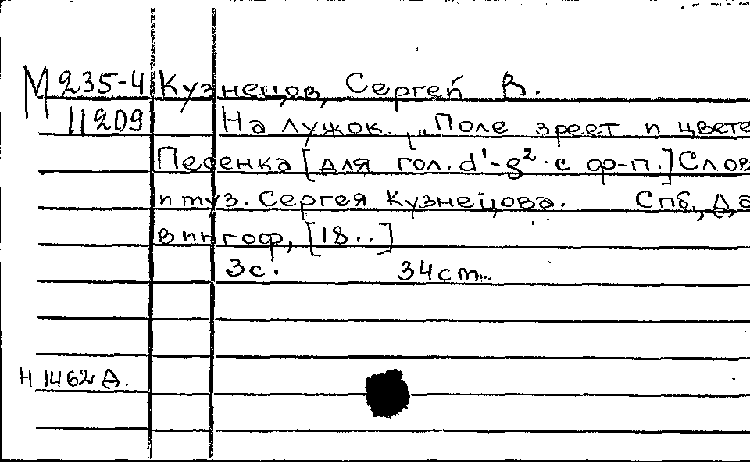 М 235-4 Кузнецов, Сергей В.
11209 На лужок. „Поле зреет и цвете
Песенка [для гол. d¹-g² с ф-п.] Слов
и муз. Сергея Кузнецова. Спб., Да
вингоф, [18..]
3с. 34см.
Н 1462А.